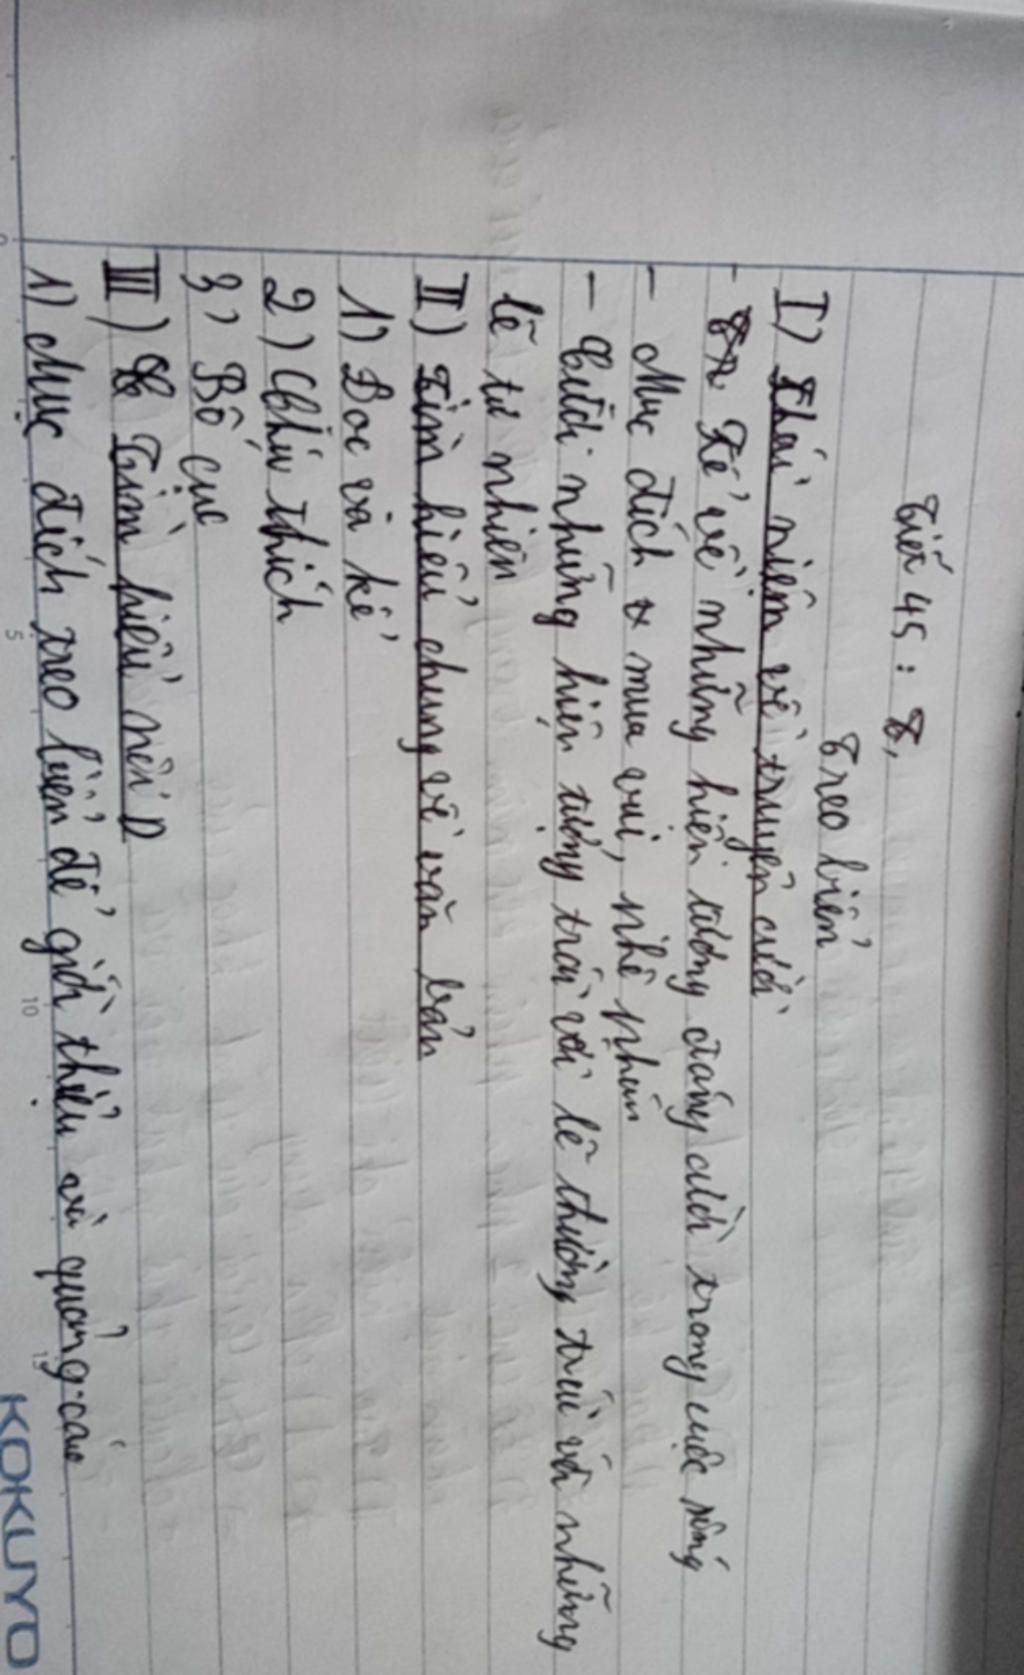 Tiết 45:
Treo biển
I) Khái niệm về truyện cười
- Kể về những hiện tượng đáng cười trong cuộc sống
- Mục đích mua vui, phê phán
- Cười những hiện tượng trái với lẽ thường trái với những
lẽ tự nhiên
II) Tìm hiểu chung về văn bản
1) Đọc và kể
2) Chú thích
3) Bố cục
III) Tìm hiểu
1) Mục đích treo biển để giới thiệu và quảng cáo
5 10 15
KOKUYO